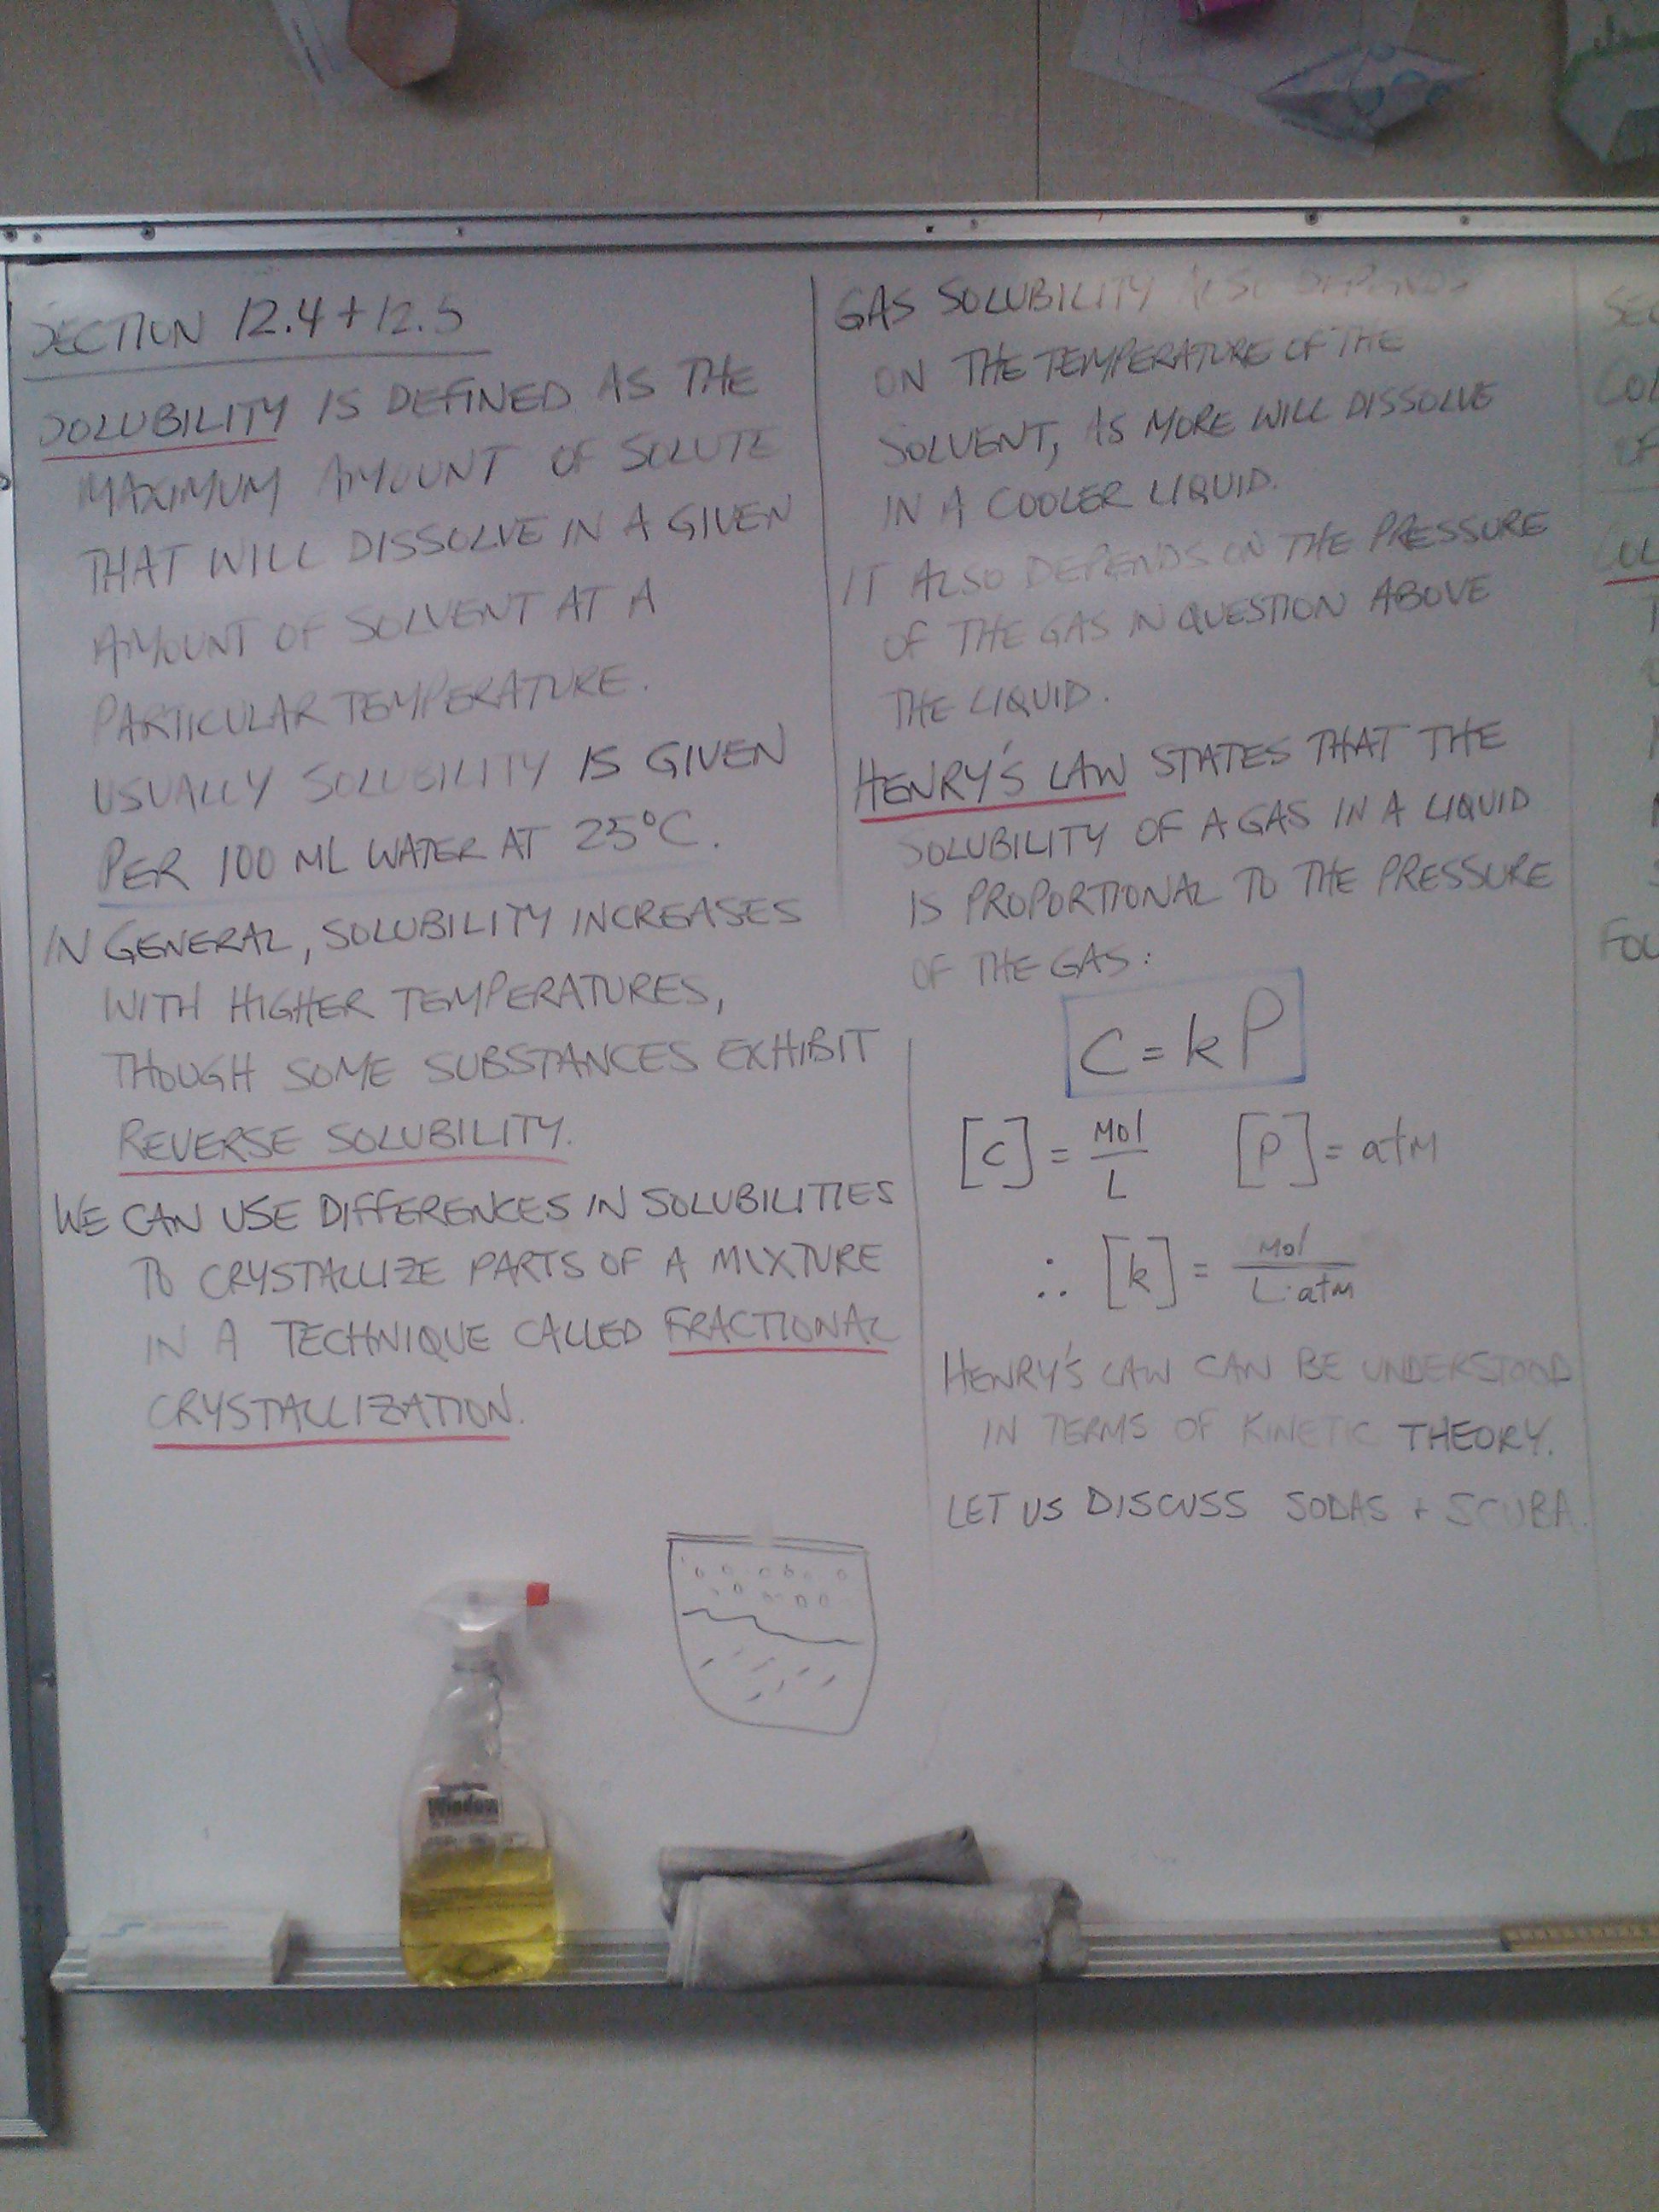 SECTION 12.4 + 12.5
SOLUBILITY IS DEFINED AS THE
MAXIMUM AMOUNT OF SOLUTE
THAT WILL DISSOLVE IN A GIVEN
AMOUNT OF SOLVENT AT A
PARTICULAR TEMPERATURE.
USUALLY SOLUBILITY IS GIVEN
PER 100 ML WATER AT 25°C.
IN GENERAL, SOLUBILITY INCREASES
WITH HIGHER TEMPERATURES,
THOUGH SOME SUBSTANCES EXHIBIT
REVERSE SOLUBILITY.
WE CAN USE DIFFERENCES IN SOLUBILITIES
TO CRYSTALLIZE PARTS OF A MIXTURE
IN A TECHNIQUE CALLED FRACTIONAL
CRYSTALLIZATION.
GAS SOLUBILITY ALSO DEPENDS
ON THE TEMPERATURE OF THE
SOLVENT, AS MORE WILL DISSOLVE
IN A COOLER LIQUID.
IT ALSO DEPENDS ON THE PRESSURE
OF THE GAS IN QUESTION ABOVE
THE LIQUID.
HENRY'S LAW STATES THAT THE
SOLUBILITY OF A GAS IN A LIQUID
IS PROPORTIONAL TO THE PRESSURE
OF THE GAS:
C = kP
[C] = mol/L [P] = atm
∴ [k] = mol/L·atm
HENRY'S LAW CAN BE UNDERSTOOD
IN TERMS OF KINETIC THEORY.
LET US DISCUSS SODAS + SCUBA.
Window